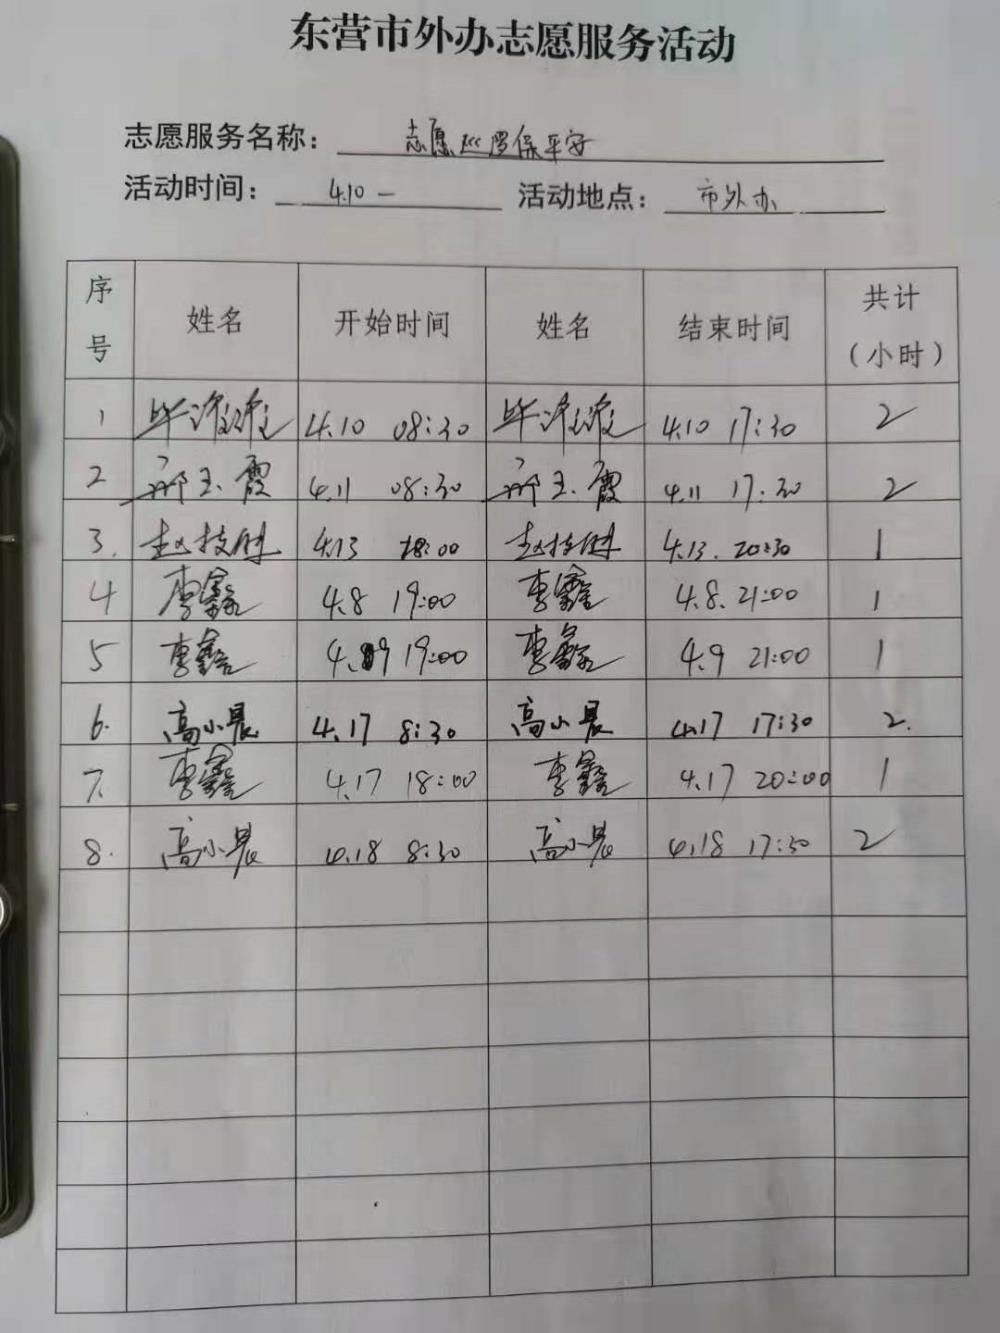 东营市外办志愿服务活动
志愿服务名称： 志愿巡逻保平安
活动时间： 4.10 — 活动地点： 市外办
序号 姓名 开始时间 姓名 结束时间 共计（小时）
1 4.10 08:30 4.10 17:30 2
2 邢玉霞 4.11 08:30 邢玉霞 4.11 17:30 2
3. 赵技胜 4.13 18:00 赵技胜 4.13. 20:30 1
4 李鑫 4.8 19:00 李鑫 4.8. 21:00 1
5 李鑫 4.9 19:00 李鑫 4.9 21:00 1
6. 高小晨 4.17 8:30 高小晨 4.17 17:30 2.
7. 李鑫 4.17 18:00 李鑫 4.17 20:00 1
8. 高小晨 4.18 8:30 高小晨 4.18 17:30 2